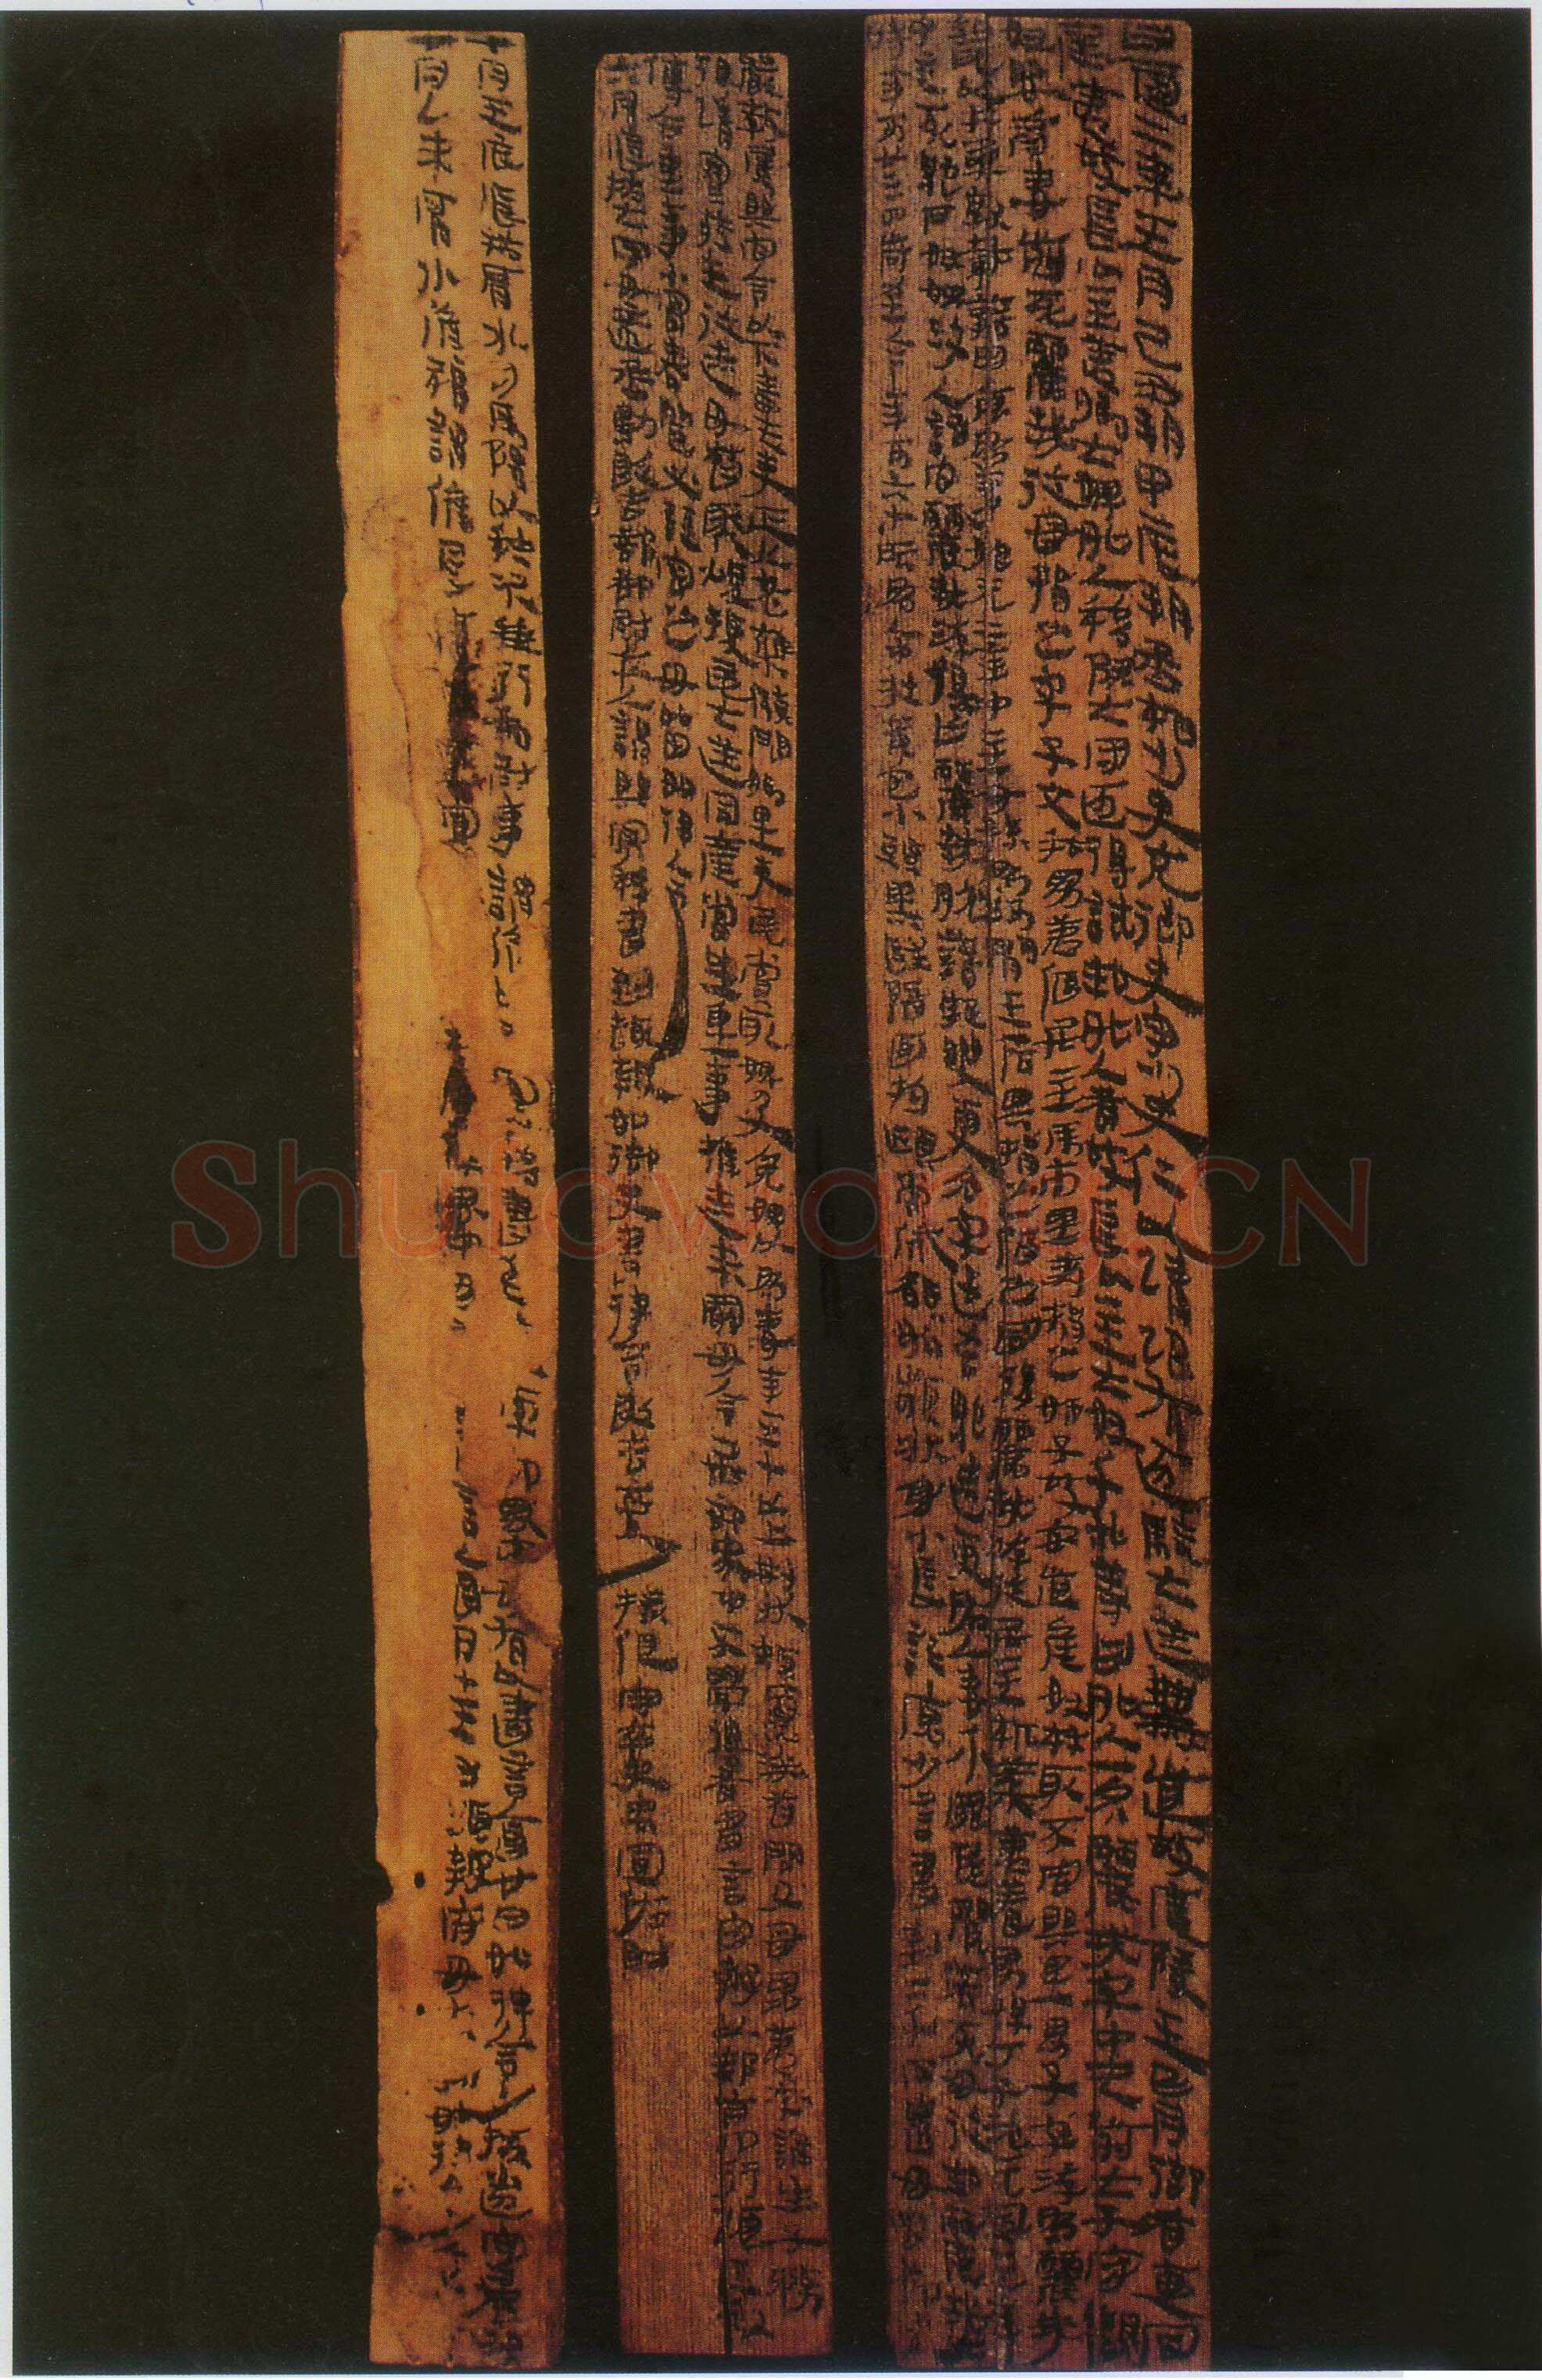 甘露二年五月己丑朔甲辰朔丞相少史充御史守少史仁以請詔有逐驗大逆無道故廣陵王胥御者惠同
產弟故長公主弟卿大婢外人移郡大守逐得試知外人者故長公主大婢千主等曰外人一名麗戎字中夫前太子守觀
奴嬰齊妻前死麗戎從母捐之字子文私男弟偃居主馬市里弟捐之姊子故安道侯奴材取不審縣里男子字游為麗戎
聟以牛車就載籍田倉為事始元二年中主女孫為河間王后與捐之偕之國後麗戎游從居主杌棻第養男孫丁子沱元鳳元年
中主死絕戶奴婢沒入詣官麗戎游俱亡麗戎脫籍疑變更名字遠走絕迹更為人妻介罪民間若死毋從知麗戎此
時年可廿三四歲至今年可六十所為人中壯黃色小頭黑髮隋面拘頤常戚額朐頻狀身小長詫廆少言書到二千石遣毋害都吏
嚴教屬縣官令以下嗇夫吏正三老雜驗問鄉里吏民賞取婢及免婢以為妻年五十以上刑狀類麗戎者問父母昆弟本誰生子務
得請實發生從迹毋督聚煩擾民大逆同產當坐重事推迹未窮毋令居部界中不覺得者書言白報以郵亭行詣長安
傳舍重事當奏聞必謹密之毋留如律令
六月張掖大守毋適丞勳敢告部都尉卒人謂縣寫移書到趣報如御史書律令敢告卒人 掾很守卒史禹置佐財
七月壬辰張掖肩水司馬陽以秩次兼行都尉事謂候城尉寫移書到廋索部界中毋有以書言會廿日如律令 掾遂守屬
七月乙未肩水候福謂候長 寫 界中 書言會月十五日須報府毋
Shufawang.CN